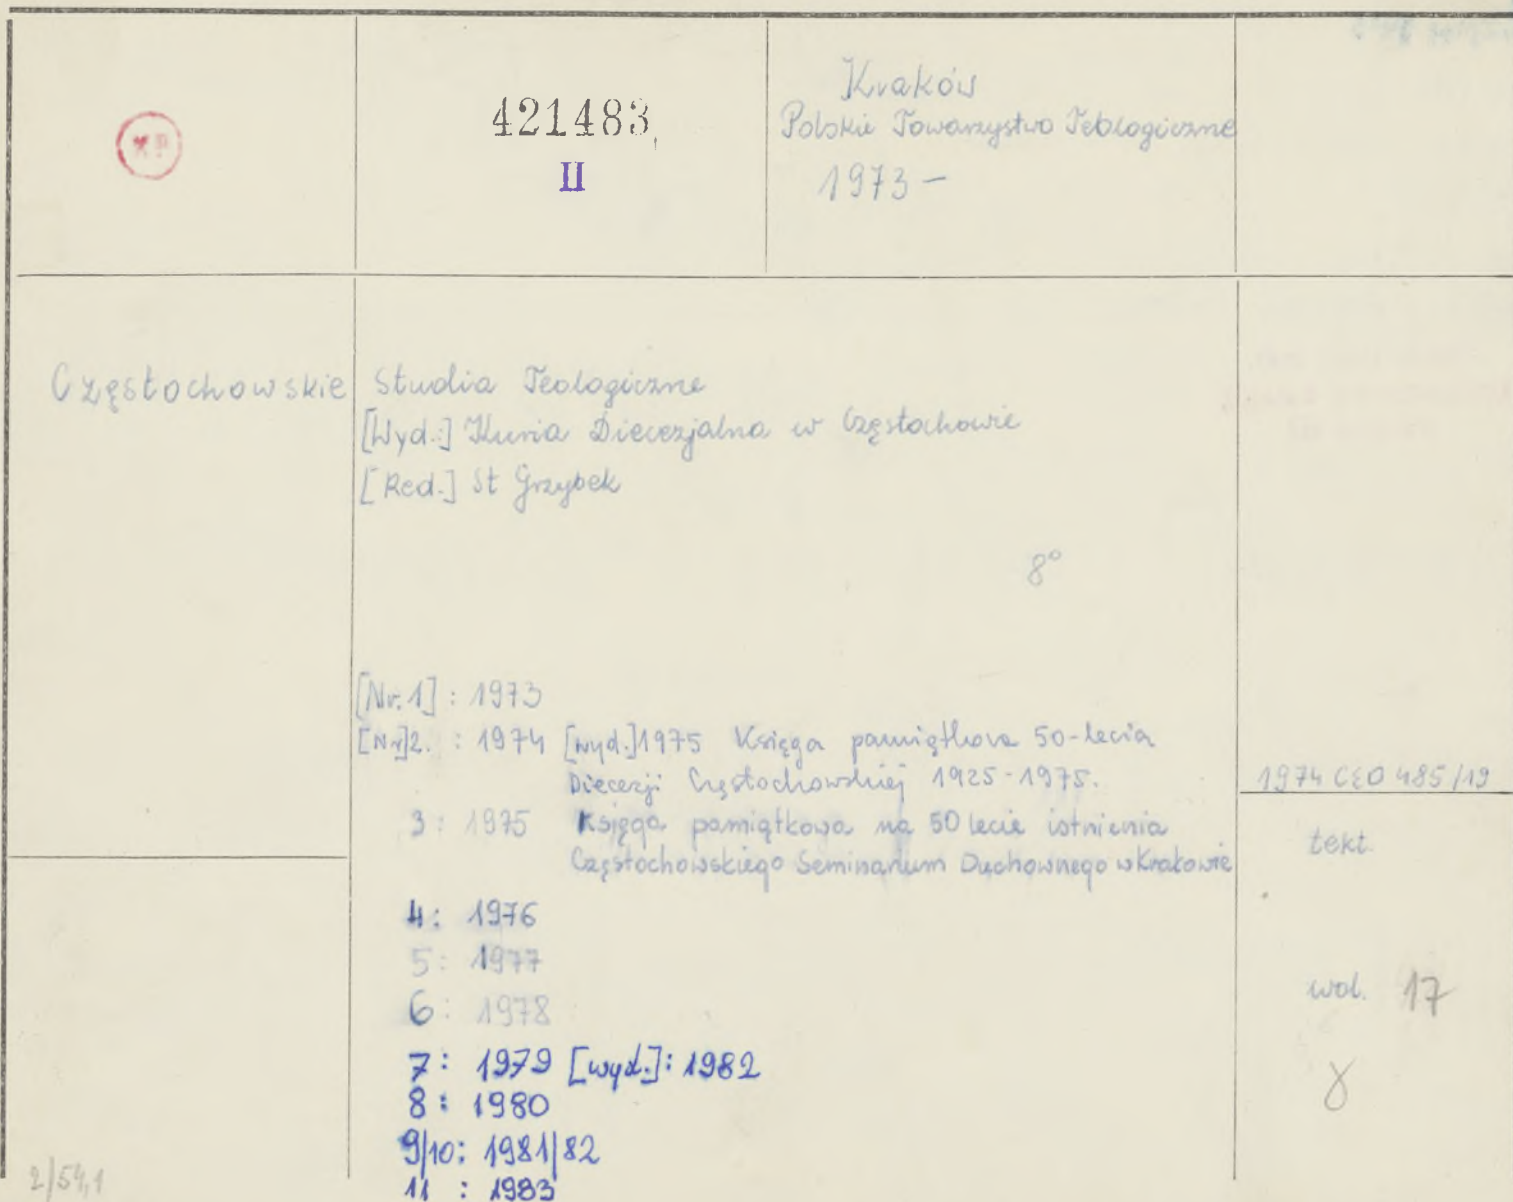 421483
II
Kraków
Polskie Towarzystwo Teologiczne
1973 -
Częstochowskie Studia Teologiczne
[Wyd.:] Kuria Diecezjalna w Częstochowie
[Red.] St Grzybek
8°
[Nr. 1] : 1973
[Nr] 2. : 1974 [wyd.] 1975 Księga pamiątkowa 50-lecia
Diecezji Częstochowskiej 1925-1975.
3 : 1975 Księga pamiątkowa na 50 lecie istnienia
Częstochowskiego Seminarium Duchownego w Krakowie
4 : 1976
5 : 1977
6 : 1978
7 : 1979 [wyd.]: 1982
8 : 1980
9/10: 1981/82
11 : 1983
1974 CEO 485/19
tekt.
wol. 17
2/54,1